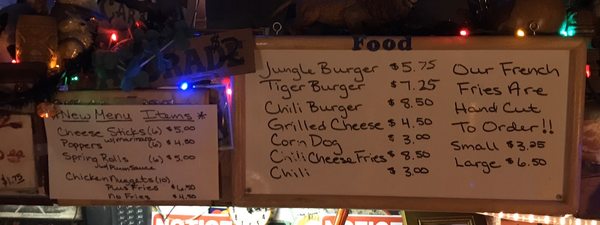 * New Menu Items *
Cheese Sticks (6) $5.00
w/marinara
Poppers (6) $4.50
Spring Rolls (6) $5.00
Chicken Nuggets (10)
Plus Fries $6.50
No Fries $4.50
Food
Jungle Burger $5.75
Tiger Burger $7.25
Chili Burger $8.50
Grilled Cheese $4.50
Corn Dog $3.00
Chili Cheese Fries $8.50
Chili $3.00
Our French
Fries Are
Hand Cut
To Order!!
Small $3.95
Large $6.50
NOTICE
NOTICE